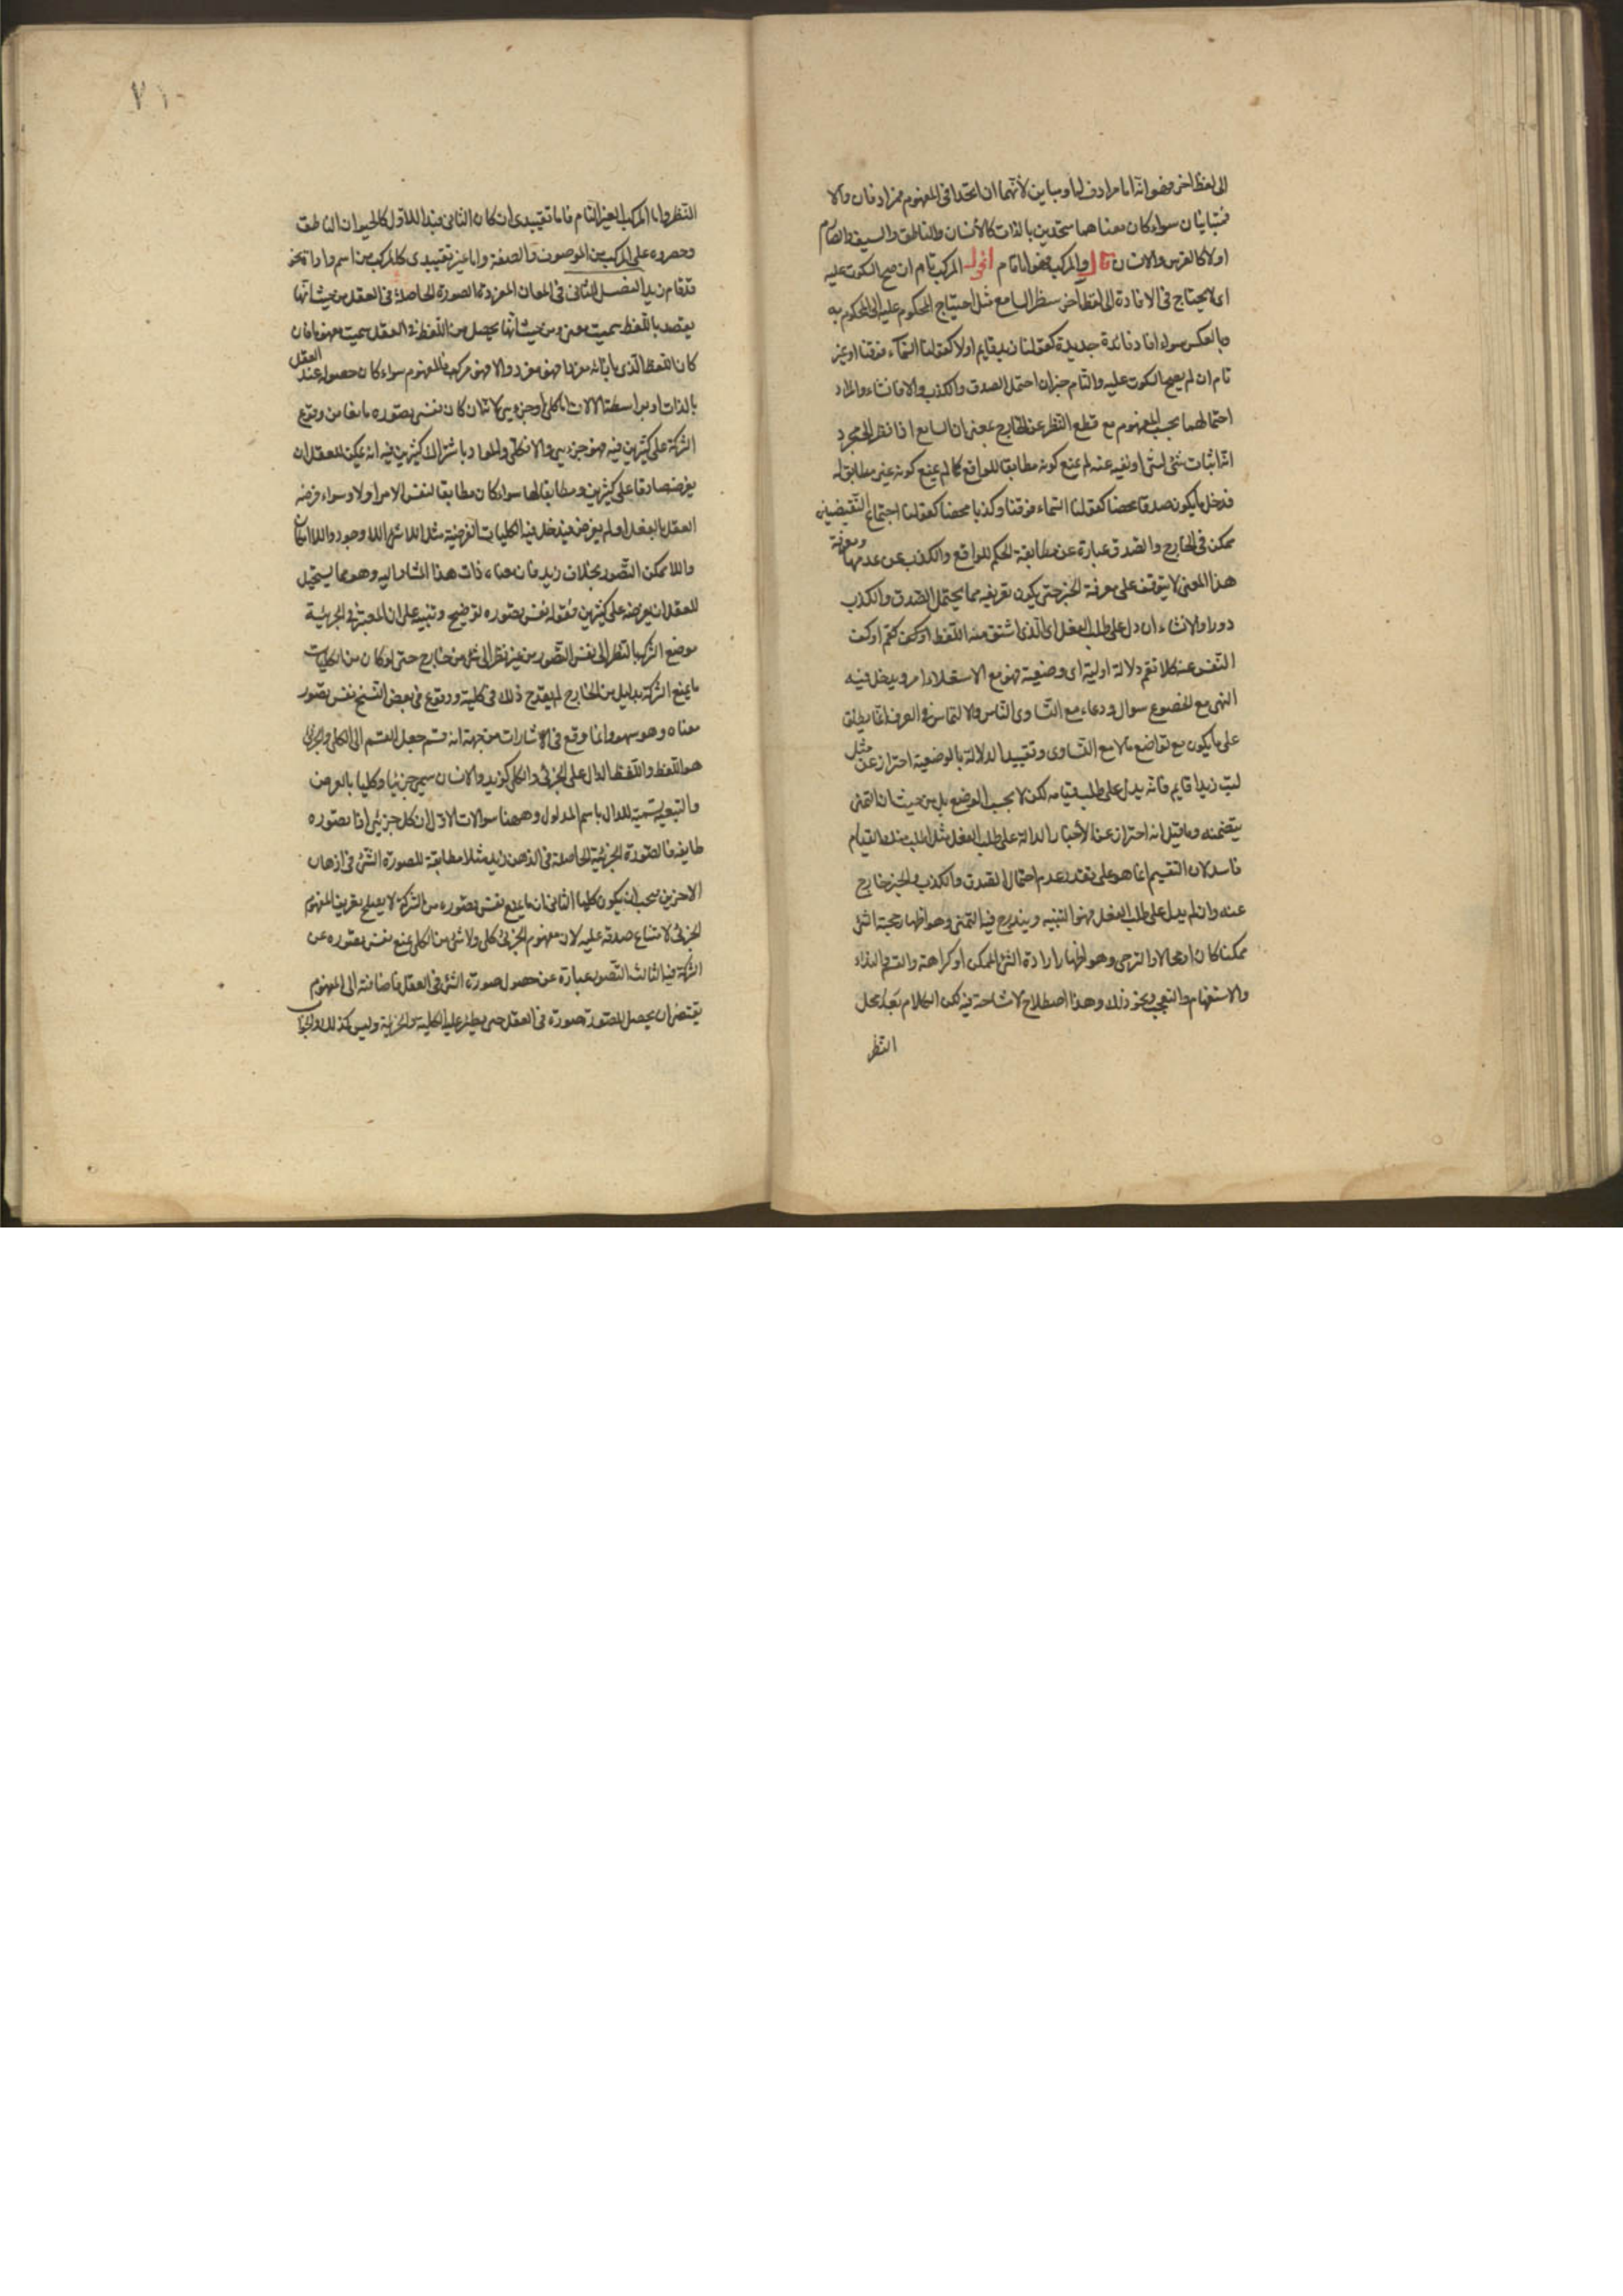 الى لفظ اخر فهو انه اما مرادف لها او مباين لأنهما ان اتحدا فى المفهوم فمرادفان والا
فمتباينان سواء كان معناهما متحدين بالذات كالأنسان والناطق والسيف والصارم
او لا كالفرس والانسان قال والمركب فهو اما تام اقول المركب تام ان صح السكوت عليه
اى لا يحتاج فى الافادة الى لفظ آخر ينتظر السامع مثل احتياج المحكوم عليه الى المحكوم به
وبالعكس سواء افاد فائدة جديدة كقولنا زيد قايم او لا كقولنا السماء فوقنا او غير
تام ان لم يصح السكوت عليه والتام خبر ان احتمل الصدق والكذب والا فانشاء والمراد
احتمالهما بحسب المفهوم مع قطع النظر عن الخارج بمعنى ان السامع اذا نظر الى مجرد
انه اثبات شئ لشئ او نفيه عنه لم يمنع كونه مطابقا للواقع كما لم يمنع كونه غير مطابق له
فدخل ما يكون صدقا محضا كقولنا السماء فوقنا وكذبا محضا كقولنا اجتماع النقيضين
ممكن فى الخارج والصدق عبارة عن مطابقة الحكم للواقع والكذب عن عدمها ومعرفة
هذا المعنى لا يتوقف على معرفة الخبر حتى يكون تعريفه بما يحتمل الصدق والكذب
دورا والانشاء ان دل على طلب الفعل اى الذى اشتق منه اللفظ او كف كفّ او كف
النفس عنه كلا تقم دلالة اولية اى وضعية فهو مع الاستعلاء امر ويدخل فيه
النهى مع الخضوع سوال ودعاء مع التساوى التماس والالتماس فى العرف انما يطلق
على ما يكون مع تواضع ما لا مع التساوى وتقييد الدلالة بالوضعية احتراز عن مثل
ليت زيدا قايم فانه يدل على طلب قيامه لكن لا بحسب الوضع بل من حيث ان التمنى
يتضمنه وما قيل انه احتراز عن الأخبار الدالة على طلب الفعل مثل اطلب منك القيام
فاسد لان التقسيم انما هو على تقدير عدم احتمال الصدق والكذب والخبر خارج
عنه وان لم يدل على طلب الفعل فهو التنبيه ويندرج فيه التمنى وهو اظهار محبة الشئ
ممكنا كان او محالا والترجى وهو اظهار ارادة الشئ الممكن او كراهته والقسم والنداء
والاستفهام والتعجب ونحو ذلك وهذا اصطلاح لا مشاحة فيه لكن الكلام بعد محل
النظر
٧١٠
النظر واما المركب الغير التام فاما تقييدى ان كان الثانى قيدا للاول كالحيوان الناطق
وحصروه على المركب من الموصوف والصفة واما غير تقييدى كالمركب من اسم واداة نحو
قد قام زيد الفصل الثانى فى المعانى المفردة الصورة الحاصلة فى العقل من حيث انها
يقصد باللفظ سميت معنى ومن حيث انها يحصل من اللفظ فى العقل سميت مفهوما فان
كان اللفظ الذى بازائه مفردا فهو مفرد والا فهو مركب فالمفهوم سواء كان حصوله عند العقل
بالذات او بواسطة الالات اما كلى او جزوىّ لانه ان كان نفس تصوره مانعا من وقوع
الشركة على كثيرين فيه فهو جزوىّ والا فكلى والمراد باشتراك كثيرين فيه انه يمكن للعقل ان
يفرضه صادقا على كثيرين ومطابقا لها سواء كان مطابقا لنفس الامر او لا وسواء فرضه
العقل بالفعل او لم يفرض فيدخل فيه الكليات الفرضية مثل اللاشئ واللا وجود واللا امكان
واللا ممكن التصور بخلاف زيد فان معناه ذات هذا المشار اليه وهو مما يستحيل
للعقل ان يفرضه على كثيرين فقوله نفس تصوره توضيح وتنبيه على ان المعتبر فى الجزئية
موضع الشركة بالنظر الى نفس التصور من غير نظر الى شئ من خارج حتى لو كان من الكليات
ما يمنع الشركة بدليل من الخارج لم يقدح ذلك فى كلية ووقوع فى بعض النسخ نفس تصور
معناه وهو سهو وانما وقع فى الاشارات من جهة انه قسم جعل المقسم الى الكلى والجزئى
هو اللفظ واللفظ الدال على الجزئى والكلى كزيد والانسان سمى جزئيا وكليا بالعرض
والتبعية تسمية للدال باسم المدلول وههنا سوالات الاول ان كل جزئى اذا تصوره
طايفة فالصورة الجزئية الحاصلة فى الذهن زيد مثلا مطابقة للصورة التى فى اذهان
الاخرين فيجب ان يكون كليا الثانى ان ما يمنع نفس تصوره من الشركة لا يصلح تعريفا لمفهوم
الجزئى لامتناع صدقه عليه لان مفهوم الجزئى كلى ولا شئ من الكلى يمنع نفس تصوره عن
الشركة فيه الثالث التصور عبارة عن حصول صورة الشئ فى العقل فاضافته الى المفهوم
يقتضى ان يحصل للصورة صورة فى العقل حتى يطلق عليه الكلية والجزئية وليس كذلك والجواب